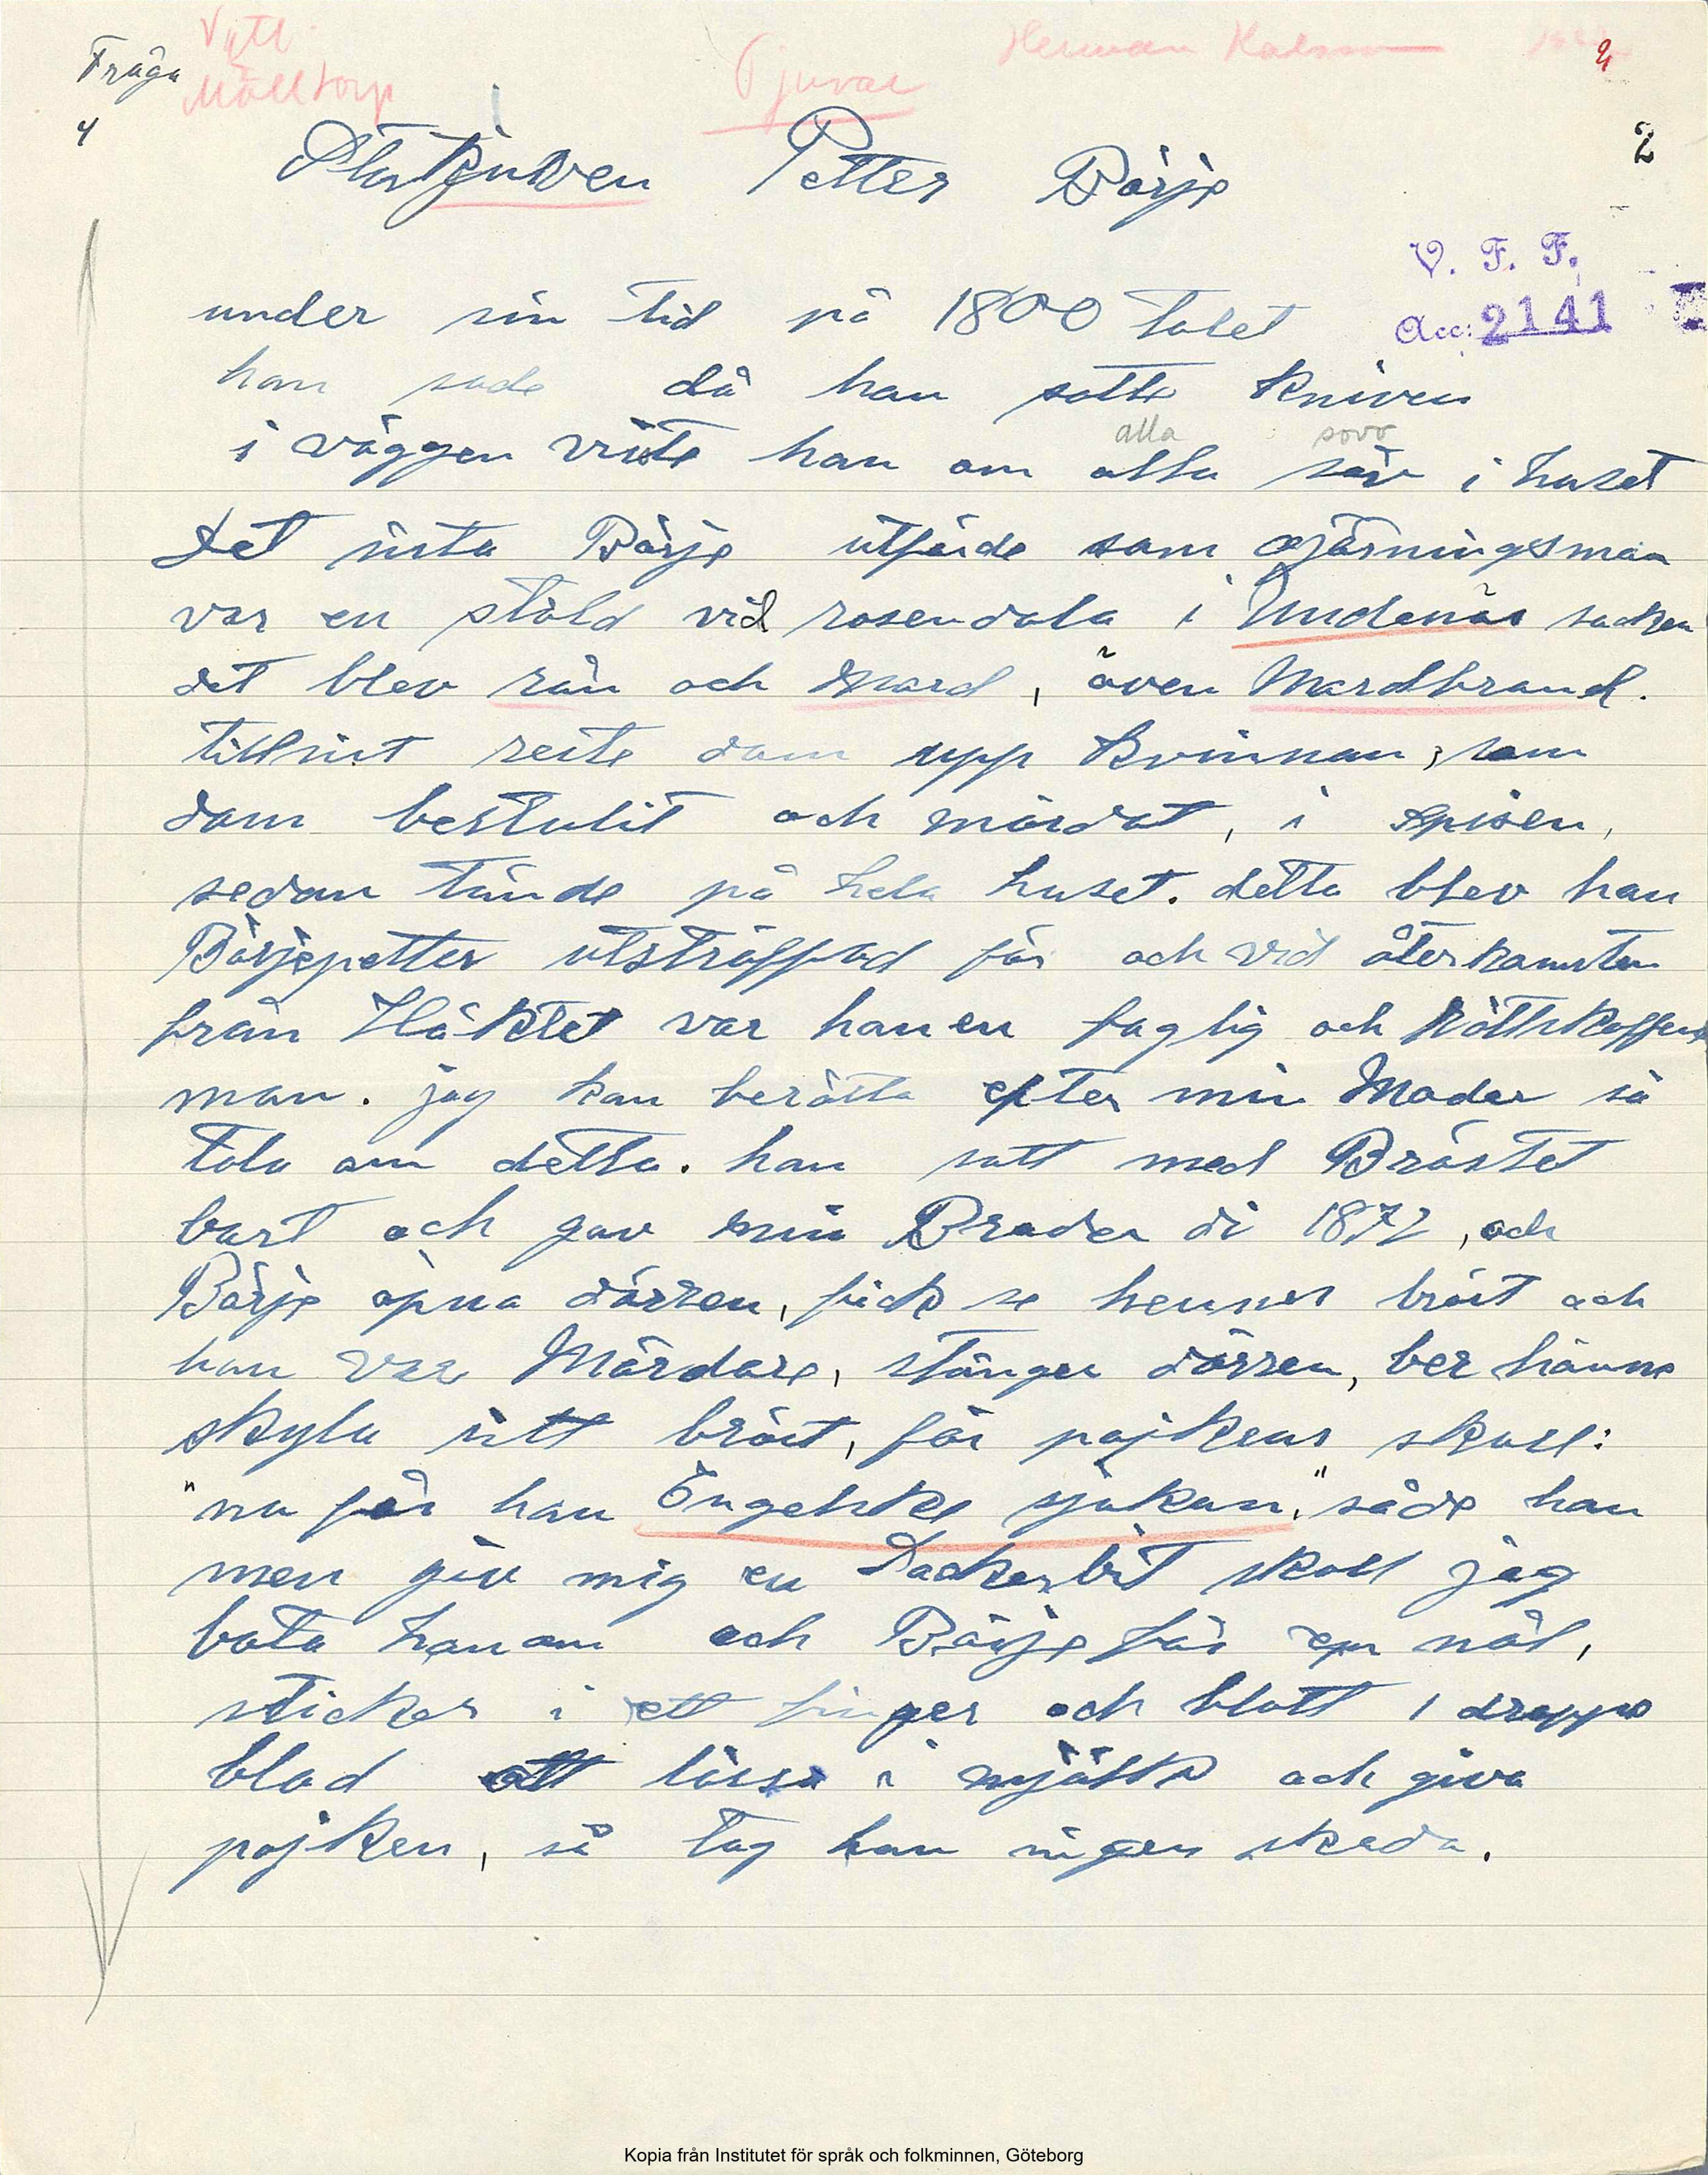 Fråga
4
Vgtl.
Mölltorp
Tjuvar
Herman Karlsson
2
2
Stortjuven Petter Börje
V. F. F.
Acc: 2141
under sin tid på 1800 talet
han sade då han satte kniven
i väggen viste han om alla söv i huset
alla sovo
det sista Börje utförde som gjärningsman
var en stöld vid rosendala i Undenäs socken
det blev rån och mord, även Mordbrand.
tillsist reste dom upp kvinnan, som
dom bestulit och mördat, i spisen,
sedan tände på hela huset. detta blev han
Börjepetter utsträffad för och vid återkomsten
från Häktet var han en faglig och rättskaffens
man. jag kan berätta efter min Moder så
tala om detta. hon satt med Bröstet
bart och gav min Broder di 1872, och
Börje öpna dörren, fick se hennes bröst och
han var Mördare, stänger dörren, ber hänne
skyla sitt bröst, för pojkens skull:
"nu får han Engelska sjukan," sade han
men giv mig en sockerbit skall jag
bota honom och Börje får en nål,
sticker i ett finger och blott 1 droppe
blod att lösa i mjölk och giva
pojken, så tog han ingen skada.
Kopia från Institutet för språk och folkminnen, Göteborg